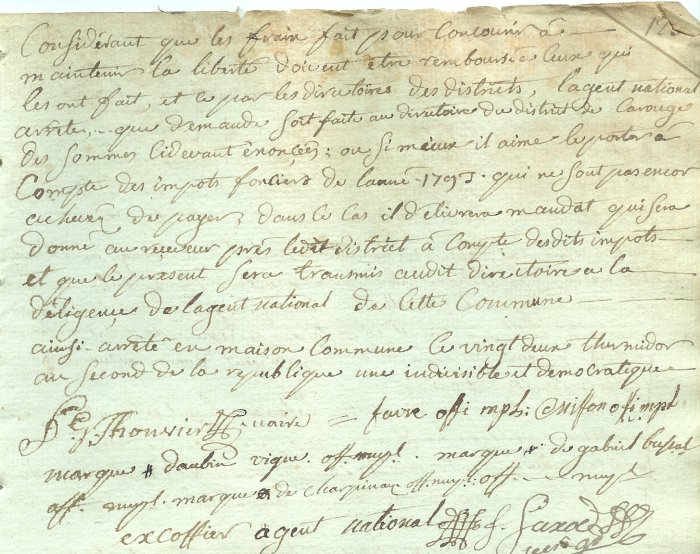 Considérant que les fraix fait pour Concourir à
maintenir la liberté doivent être remboursée Ceux qui
les ont fait, et ce par les directoires des districts, l'agent national
arrête, que demande soit faite au directoire du district de Carouge
des sommes Cidevant énoncées; ou si mieux il aime le porter à
Compte des impots fonciers de l'anné 1793. qui ne sont pas encor
achevé de payer, dans ce Cas il délivrera mandat qui sera
donné au receveur près ledit district à Compte desdits impots
et que le présent sera transmis audit directoire a la
déligence de l'agent national de Cette Commune
ainsi arrêté en maison Commune Ce vingt deux thermidor
an second de la république une indivisible et democratique
Thouvier maire = favre offi mpl:
marque d'aubin vique. off. mupl. marque de gabriel
off. mupl. marque de off. mupl: off mupl
excoffier agent national